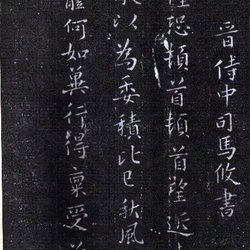 晋侍中司馬攸書
恐頓首頓首望近
以為委積比已秋風
何如冀行得稟受